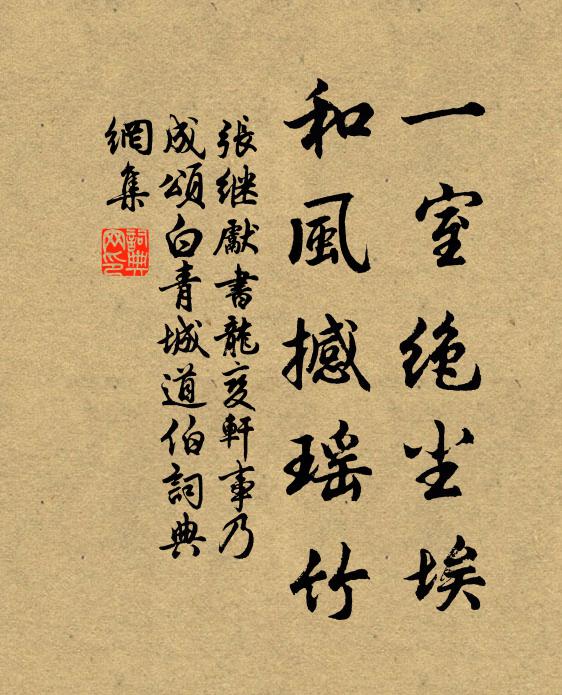 一室绝尘埃
和風撼瑶竹
張继獻書龍变軒事乃
成頌白青城道伯詞典
網集
詞典网印